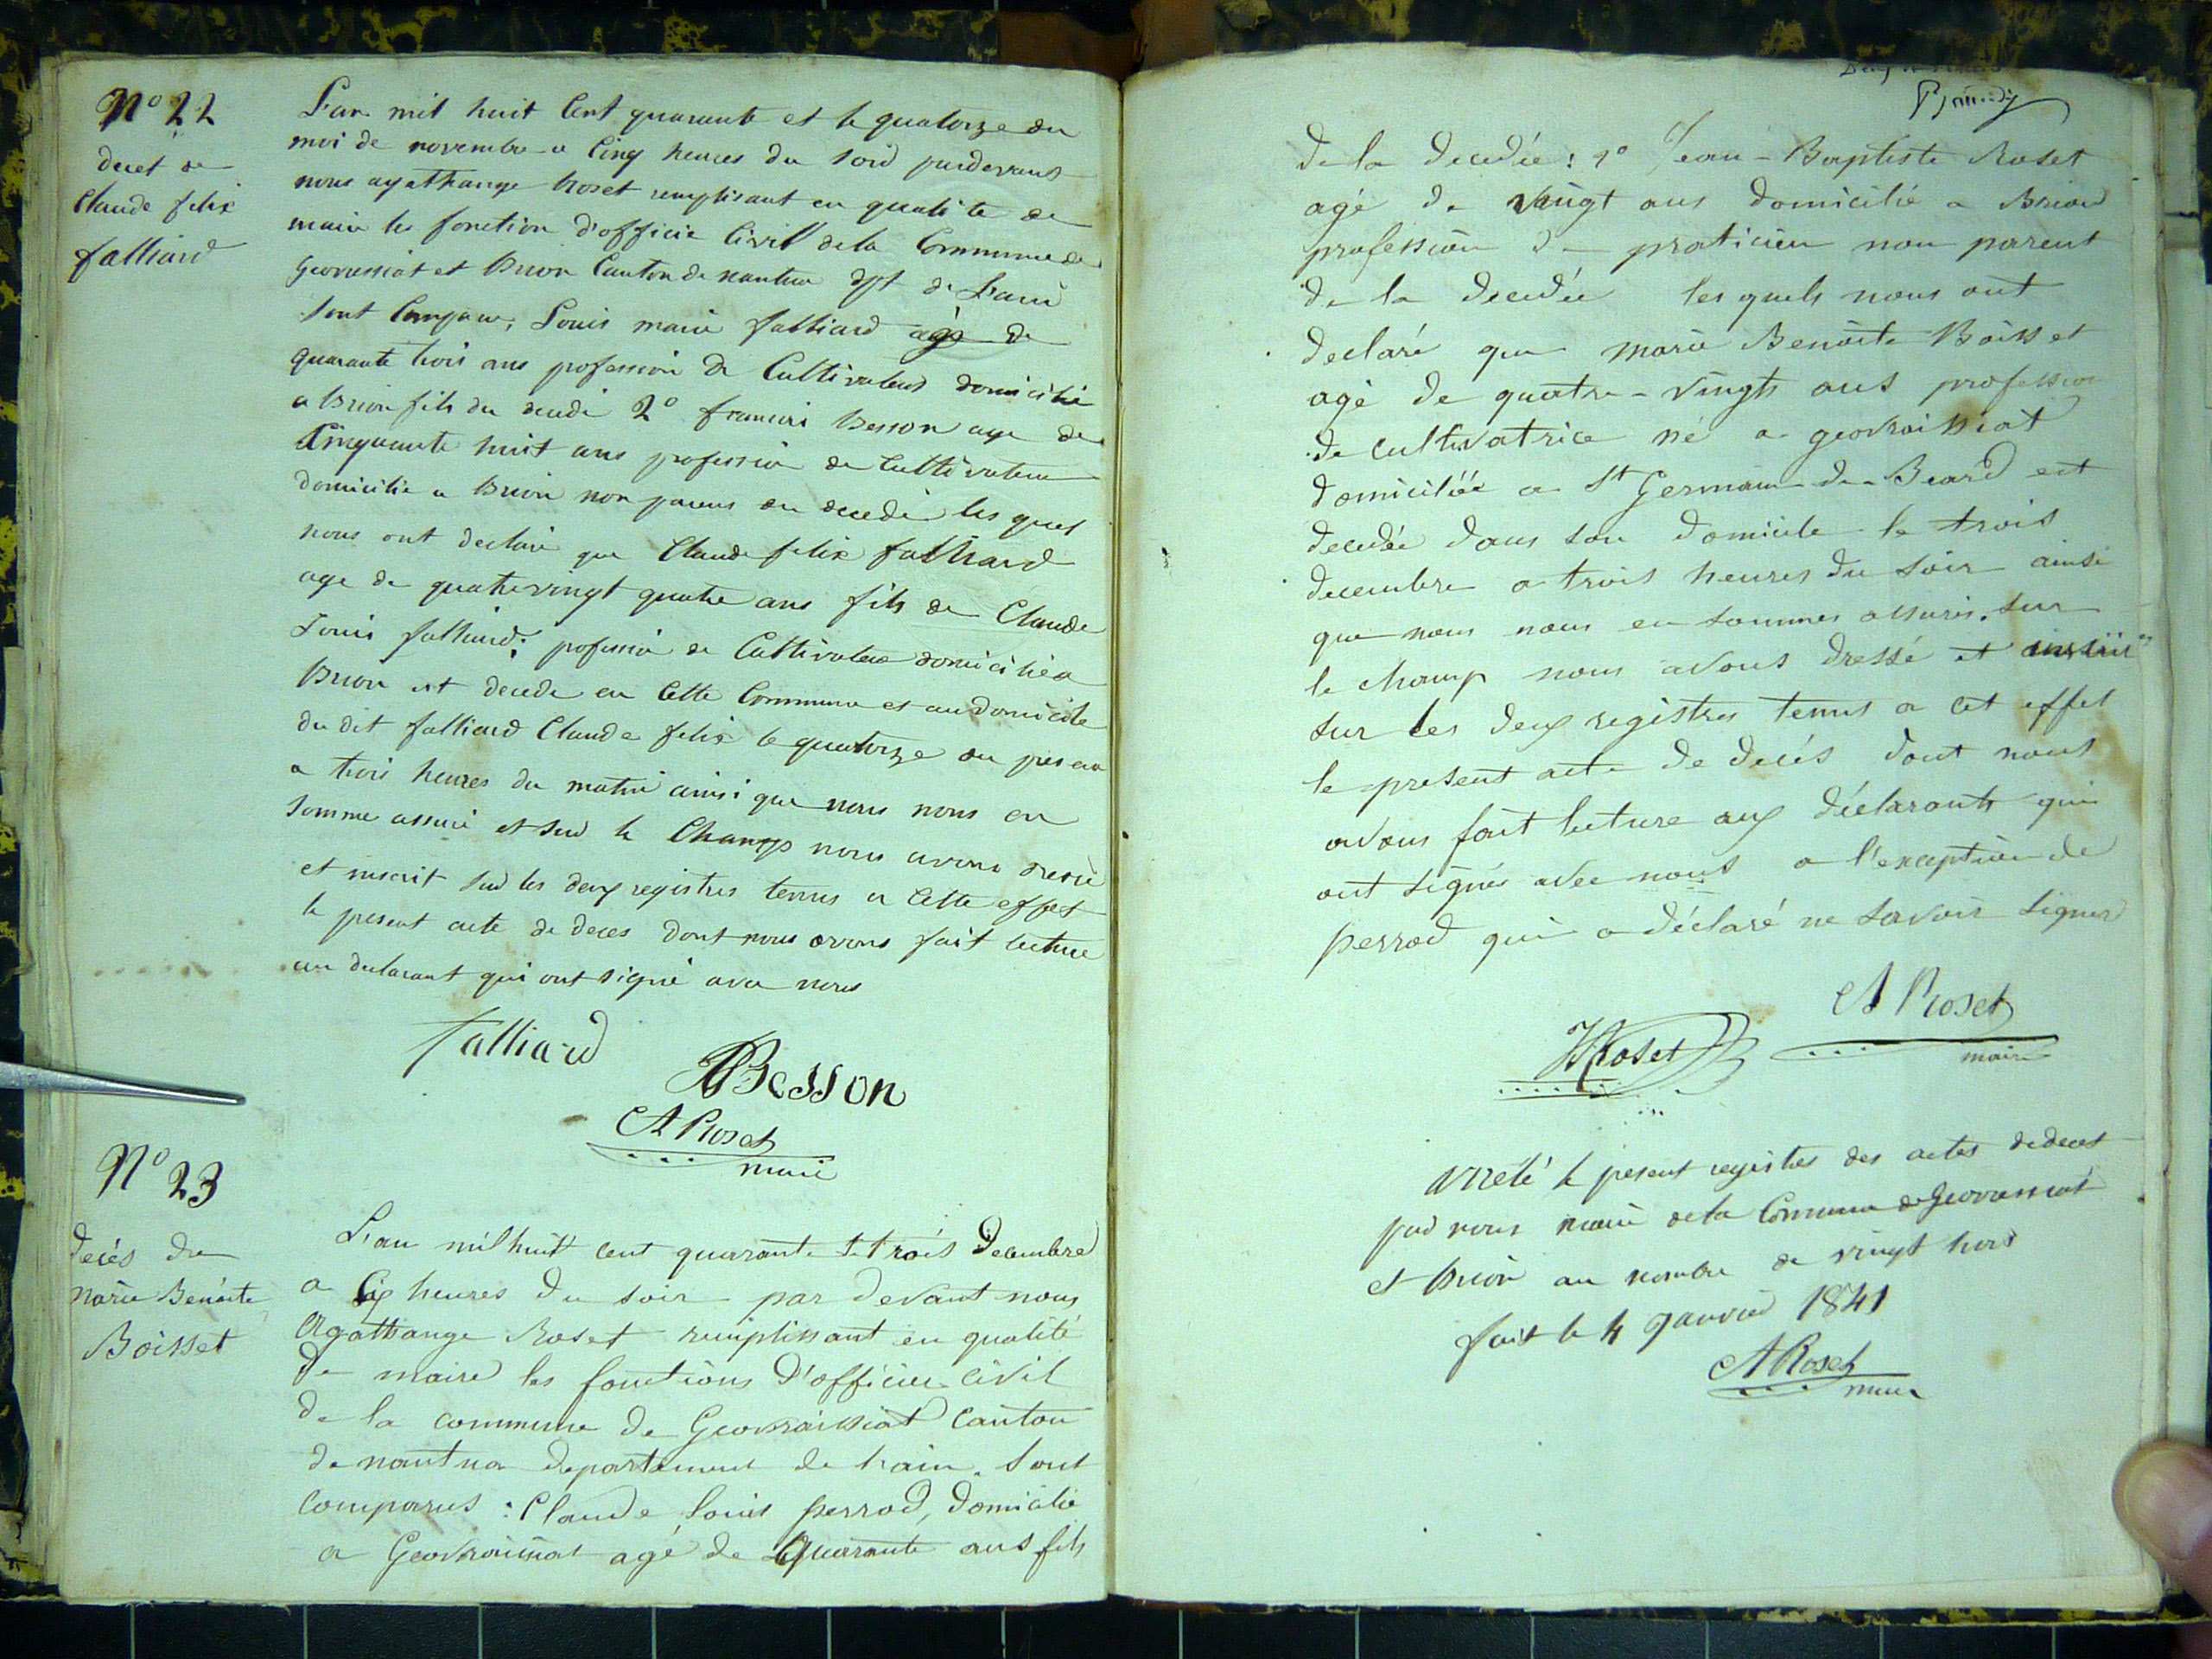 N° 22
decet de
Claude felix
falliard
L'an mil huit Cent quarante et le quatorze du
moi de novembre a Cinq heures du soid pardevant
nous agathange Roset remplisant en qualite de
maire les fonction d'officie Civil de la Commune de
Geovressiat et Brion Canton de nantua dpt de L'ain
sont Comparu, Louis marie falliard agé de
quarante trois ans profession de Cultivateur domicilié
a Brion fils du decedé 2° francois Besson age de
Cinquante huit ans profession de Cultivateur
domicilie a Brion non parens du decede les quel
nous ont declaré que Claude felix falliard
age de quatrevingt quatre ans fils de Claude
Louis falliard; profession de Cultivateur domicilié a
Brion est decede en Cette Commune et au domicile
du dit falliard Claude felix le quatorze du presen
a trois heures du matin ainsi que nous nous en
somme assuré et sur le Champs nous avons dressé
et inscrit sur les deux registres tenus a Cette effet
le present acte de deces dont nous avons fait lecture
au declarant qui ont signé avec nous
falliard
Besson
A Roset
maire
N° 23
decés de
Marie Benoite
Boisset
L'an mil huit cent quarante le trois decembre
a six heures du soir par devant nous
Agathange Roset remplissant en qualité
de maire les fonctions d'officier civil
de la commune de Geovraissiat Canton
de nantua departement de l'ain. sont
comparus : Claude Louis perrod, domicilié
a Geovraissiat agé de Quarante ans fils
de la decedée : 2° Jean-Baptiste Roset
agé de vingt ans domicilié a Brion
profession de praticien non parent
de la decedée les quels nous ont
declaré que marie Benoite Boisset
agé de quatre-vingts ans profession
de cultivatrice né a geovraissiat
domiciliée a St Germain-de-Beard est
decedée dans son domicile le trois
decembre a trois heures du soir ainsi
que nous nous en sommes assurés. sur
le champ nous avons dressé et inscrit
sur les deux registres tenus a cet effet
le present acte de decés dont nous
avons fait lecture aux déclarants qui
ont signés avec nous a l'exception de
perrod qui a déclaré ne savoir signer
A Roset
maire
JBRoset
Arrêté le present registres des actes de decet
par nous maire de la Commune de Geovressiat
et Brion au nombre de vingt trois
fait le 4 Janvier 1841
A Roset
maire